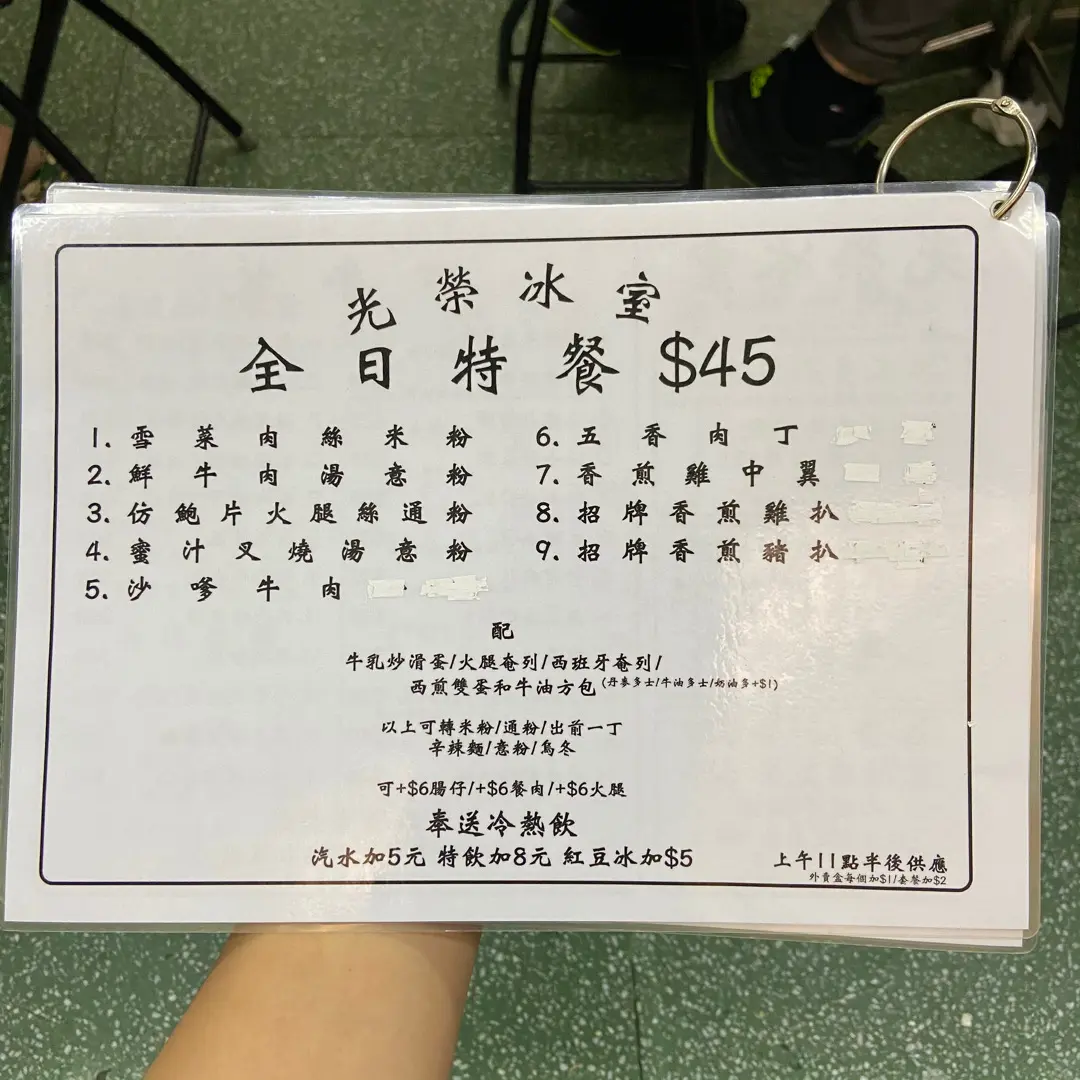 光榮冰室
全日特餐 $45
1. 雪菜肉絲米粉
2. 鮮牛肉湯意粉
3. 仿鮑片火腿絲通粉
4. 蜜汁叉燒湯意粉
5. 沙嗲牛肉
6. 五香肉丁
7. 香煎雞中翼
8. 招牌香煎雞扒
9. 招牌香煎豬扒
配
牛乳炒滑蛋/火腿奄列/西班牙奄列/
西煎雙蛋和牛油方包(丹麥多士/牛油多士/奶油多+$1)
以上可轉米粉/通粉/出前一丁
辛辣麵/意粉/烏冬
可+$6腸仔/+$6餐肉/+$6火腿
奉送冷熱飲
汽水加5元 特飲加8元 紅豆冰加$5
上午11點半後供應
外賣盒每個加$1/套餐加$2